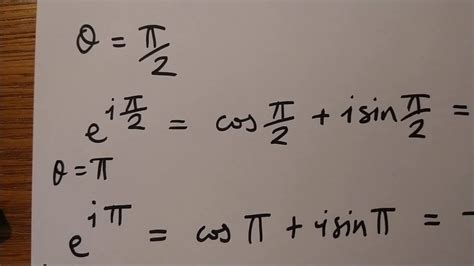 θ = π/2
e^{iπ/2} = cos π/2 + i sin π/2 =
θ = π
e^{iπ} = cos π + i sin π = -